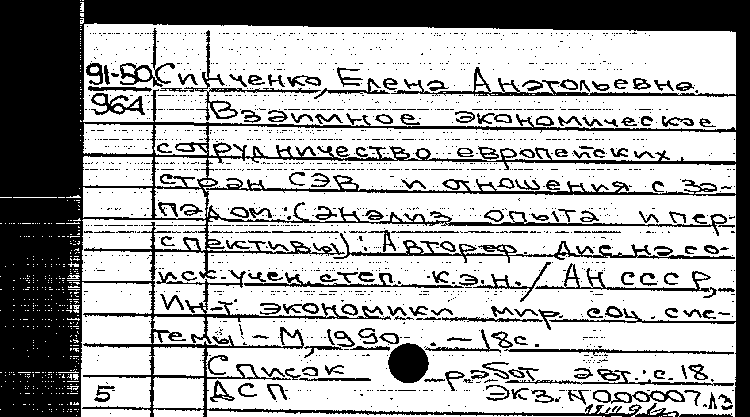 91-50 Синченко, Елена Анатольевна
964 Взаимное экономическое
сотрудничество европейских
стран СЭВ и отношения с За-
падом: (анализ опыта и пер-
спективы): Автореф. дис. на со-
иск. учен. степ. к.э.н. / АН СССР,
Ин-т экономики мир. соц. сис-
темы. - М., 1990. - 18с.
Список работ авт.: с.18.
5 ДСП Экз. N000007.